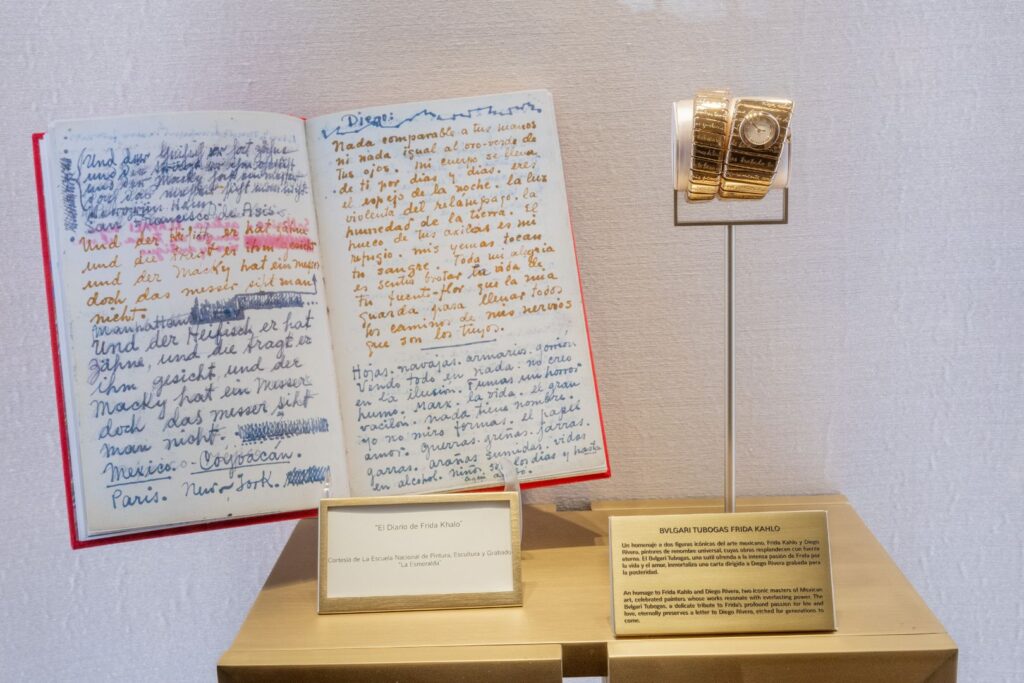 Und der
San Francisco de Asis.
Und der er hat zähne
und die tragt er ihm gesicht
und der Macky hat ein messer
doch das messer siht man
nicht.
Manhattan
Und der Heifisch er hat
Zähne, und die tragt er
ihm gesicht und der
Macky hat ein Messer
doch das messer siht
man nicht.
Mexico. - Coyoacan.
Paris. New-York.
Diego:
Nada comparable a tus manos
ni nada igual al oro-verde de
tus ojos. Mi cuerpo se llena
de ti por días y días. eres
el espejo de la noche. la luz
violenta del relámpago. la
humedad de la tierra. El
hueco de tus axilas es mi
refugio. mis yemas tocan
tu sangre. Toda mi alegría
es sentir brotar tu vida de
tu fuente-flor que la mia
guarda para llenar todos
los caminos de mis nervios
que son los tuyos.
Hojas. navajas. armario. gorrion
Vendo todo en nada. no creo
en la ilusión. fumas un horror
humo. Marx. la vida. el gran
vacilón. nada tiene nombre.
yo no miro formas. el papel
amor. Guerras. greñas. jarras.
garras. arañas sumidas. vidas
en alcohol. niños los días y hasta
"El Diario de Frida Khalo"
Cortesía de La Escuela Nacional de Pintura, Escultura y Grabado
"La Esmeralda"
BVLGARI TUBOGAS FRIDA KAHLO
Un homenaje a dos figuras icónicas del arte mexicano, Frida Kahlo y Diego
Rivera, pintores de renombre universal, cuyas obras resplandecen con fuerza
eterna. El Bvlgari Tubogas, una sutil ofrenda a la intensa pasión de Frida por
la vida y el amor, inmortaliza una carta dirigida a Diego Rivera grabada para
la posteridad.
An homage to Frida Kahlo and Diego Rivera, two iconic masters of Mexican
art, celebrated painters whose works resonate with everlasting power. The
Bvlgari Tubogas, a delicate tribute to Frida's profound passion for life and
love, eternally preserves a letter to Diego Rivera, etched for generations to
come.